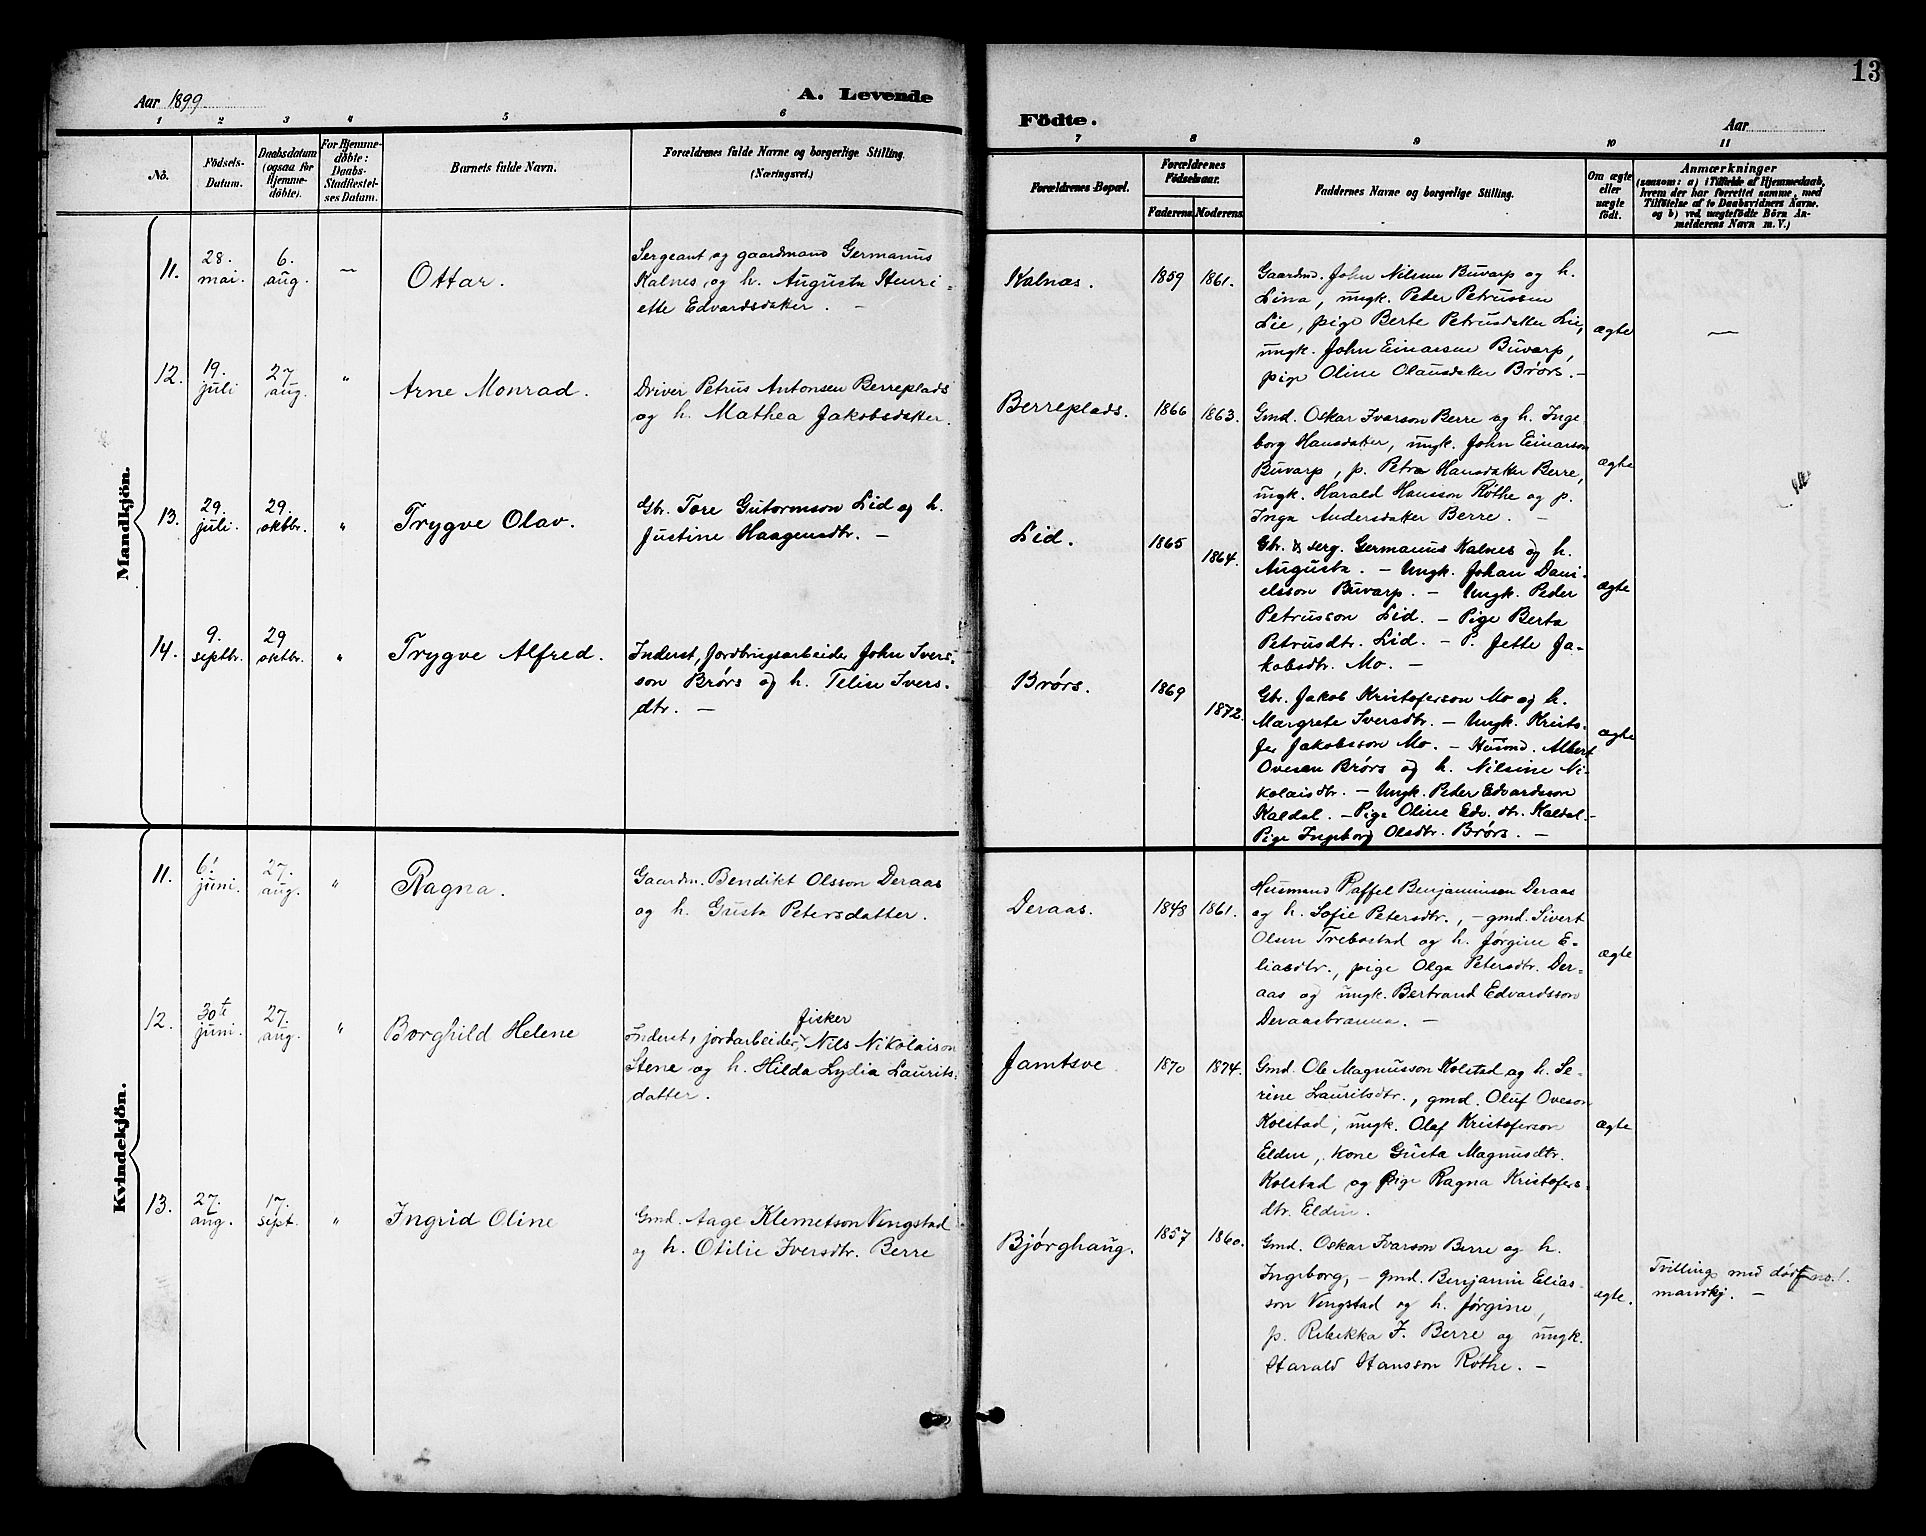 13
Aar 1899
A. Levende
Födte.
Aar
1 2 3 4 5 6
7 8 9 10 11
No.
Födsels-
Datum.
Daabsdatum
(ogsaa for
Hjemme-
døbte).
For Hjemme-
döbte:
Daabs-
Stadfæstel-
ses Datum.
Barnets fulde Navn.
Forældrenes fulde Navne og borgerlige Stilling.
(Næringsvei.)
Forældrenes Bopæl.
Forældrenes
Födselsaar.
Faderens.
Moderens.
Faddernes Navne og borgerlige Stilling.
Om ægte
eller
uægte
født.
Anmærkninger
(saasom: a) i Tilfælde af Hjemmedaab,
hvem der har forrettet samme, med
Tilföielse af to Daabsvidners Navne.
og b) ved uægtefödte Börn An-
melderens Navn m. V.)
Mandkjön.
11.
28.
mai.
6.
aug.
—
Ottar.
Sergeant og gaardmand Germanus
Kalnes, og h. Augusta Henri-
ette Edvardsdatter. —
Kalnæs.
1859
1861.
Gaardmd. John Nilssen Buvarp og h.
Lina, ungk. Peder Petrussen
Lie, pige Berte Petrusdatter Lie,
ungk. John Einarsen Buvarp,
pige Oline Olausdatter Brørs. —
ægte
—
12.
19.
juli
27
aug.
"
Arne Monrad.
Driver Petrus Antonsen Berreplads
og h. Mathea Jakobsdatter.
Berreplads.
1866
1863.
Gmd. Oskar Ivarson Berre og h. Inge-
borg Hansdatter, ungk. John Einarson
Buvarp, p. Petra Hansdatter Berre,
ungk. Harald Hansson Røthe og p.
Inga Andersdatter Berre. —
ægte
13.
29.
juli.
29.
oktbr.
"
Trygve Olav.
Gbr. Tore Gutormson Lid og h.
Justine Haagensdtr. —
Lid.
1865
1864.
Gbr. & serg. Germanus Kalnes og h.
Augusta. — Ungk. Johan Dani-
elsson Buvarp. — Ungk. Peder
Petrusson Lid. — Pige Berta
Petrusdtr. Lid. — P. Jette Ja-
kobsdtr. Mo. —
ægte
14.
9.
septbr.
29
oktbr.
"
Trygve Alfred.
Inderst, jordbrugsarbeider John Ivers-
son Brørs og h. Teline Ivers-
dtr. —
Brørs.
1869
1872.
Gbr. Jakob Kristoferson Mo og h.
Margrete Iversdtr. — Ungk. Kristo-
fer Jakobsson Mo. — Husmd. Albert
Ovesen Brørs og h. Nilsine Ni-
kolaisdtr. — Ungk. Peder Edvardsson
Kaldal. — Pige Oline Edv.dtr. Kaldal. —
Pige Ingeborg Olsdtr. Brørs. —
ægte
Kvindekjön.
11.
6!
juni.
27.
aug.
"
Ragna.
Gaardm. Bendikt Olsson Deraas
og h. Gusta Petersdatter.
Deraas.
1848
1861.
Husmand Raffel Benjaminsen Deraas
og h. Sofie Petersdtr., — gmd. Sivert
Olsen Trebostad og h. Jørgine E-
liasdtr., pige Olga Petersdtr. Der-
aas og ungk. Bertrand Edvardsson
Deraasbrauna. —
ægte
12.
30te
juni.
27.
aug.
"
Borghild Helene
fisker
Inderst, jordarbeider, Nils Nikolaison
Stene og h. Hilda Lydia Laurits-
datter.
Jamtsve
1870
1874.
Gmd. Ole Magnusson Kolstad og h. Se-
rine Lauritsdtr., gmd. Oluf Oveson
Kolstad, ungk. Olaf Kristoferson
Elden, kone Gusta Magnusdtr.
Kolstad og pige Ragna Kristofers-
dtr. Elden.
ægte
13.
27.
aug.
17.
sept.
"
Ingrid Oline
Gmd. Aage Klemetson Vengstad
og h. Otilie Iversdtr. Berre
Bjørghaug.
1857
1860.
Gmd. Oskar Ivarson Berre og h.
Ingeborg, — gmd. Benjamin Elias-
son Vengstad og h. Jørgine,
p. Rebekka I. Berre og ungk.
Harald Hansson Røthe. —
ægte.
Tvilling med dødf. no. 1.
mandkj. —